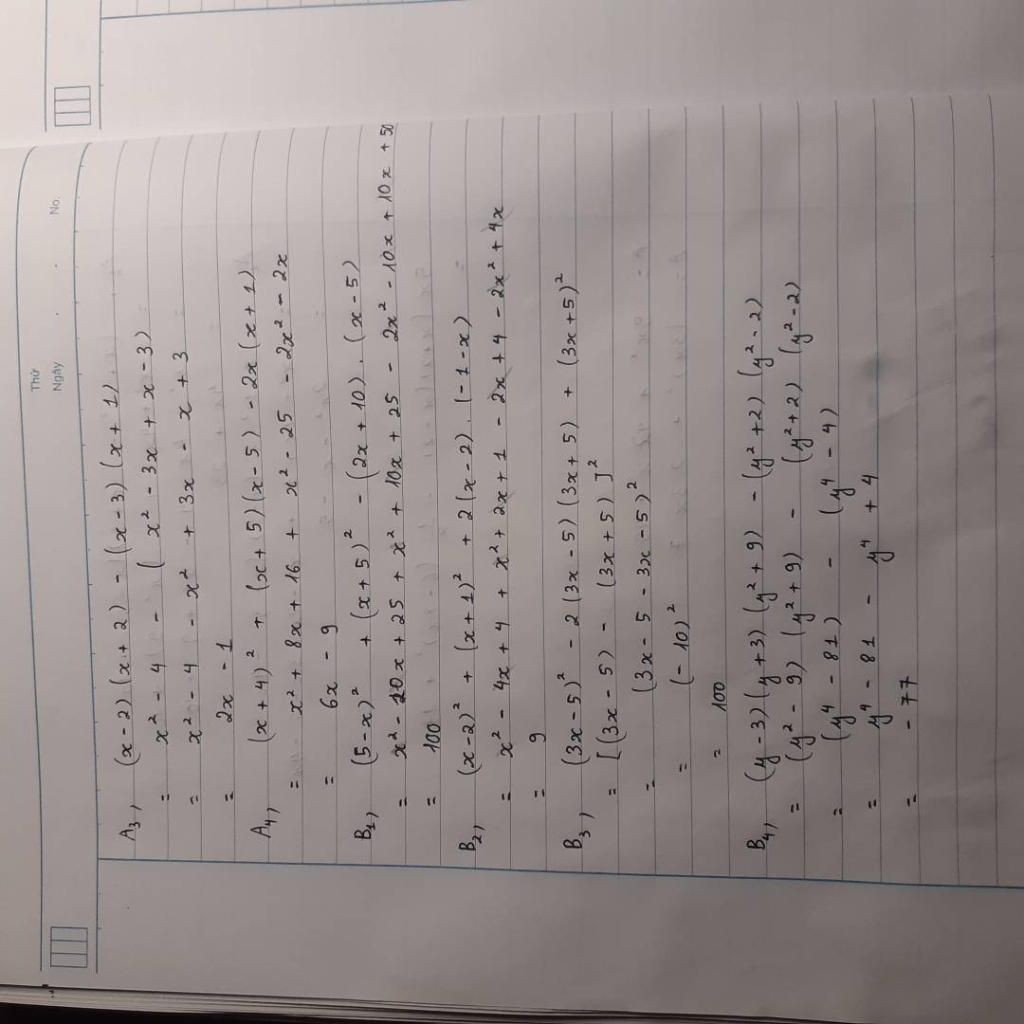 Thứ
Ngày . . No.
A3, (x-2)(x+2) - (x-3)(x+1)
= x² - 4 - (x² - 3x + x - 3)
= x² - 4 - x² + 3x - x + 3
= 2x - 1
A4, (x+4)² + (x+5)(x-5) - 2x(x+1)
= x² + 8x + 16 + x² - 25 - 2x² - 2x
= 6x - 9
B1, (5-x)² + (x+5)² - (2x+10).(x-5)
= x² - 10x + 25 + x² + 10x + 25 - 2x² - 10x + 10x + 50
= 100
B2, (x-2)² + (x+1)² + 2(x-2).(-1-x)
= x² - 4x + 4 + x² + 2x + 1 - 2x + 4 - 2x² + 4x
= 9
B3, (3x-5)² - 2(3x-5)(3x+5) + (3x+5)²
= [(3x-5) - (3x+5)]²
= (3x - 5 - 3x - 5)²
= (-10)²
= 100
B4, (y-3)(y+3)(y²+9) - (y²+2)(y²-2)
= (y²-9)(y²+9) - (y²+2)(y²-2)
= (y⁴ - 81) - (y⁴ - 4)
= y⁴ - 81 - y⁴ + 4
= -77